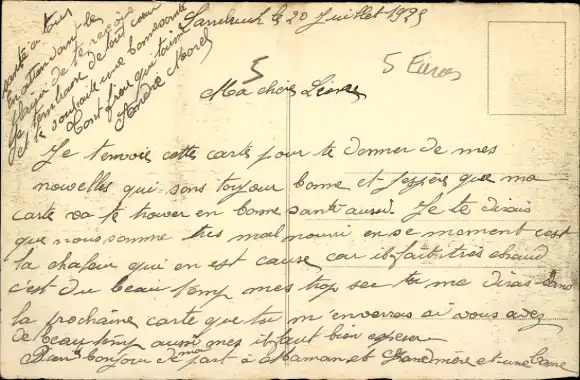 Landrecies le 20 Juillet 1925
5
5 Euros
Ma chère
Je t'envoie cette carte pour te donner de mes
nouvelles qui sons toujour bonne et j'espère que ma
carte va te trouver en bonne santé aussi. Je te dirais
que nous somme très mal nourri en se moment c'est
la chaleur qui en est cause car il fait très chaud
c'est du beau temp mes trop sec tu me diras dans
la prochaine carte que tu m'enverras si vous avez
de beau temp aussi mes il faut bien espérer
bonjour de ma part à Maman et Grandmère et une bonne
santé a tous
En attendant le
plaisir de te revoir
Je t'embrasse de tout coeur
et te souhaite une bonne santé
Ton frère qui t'aime
André Morel